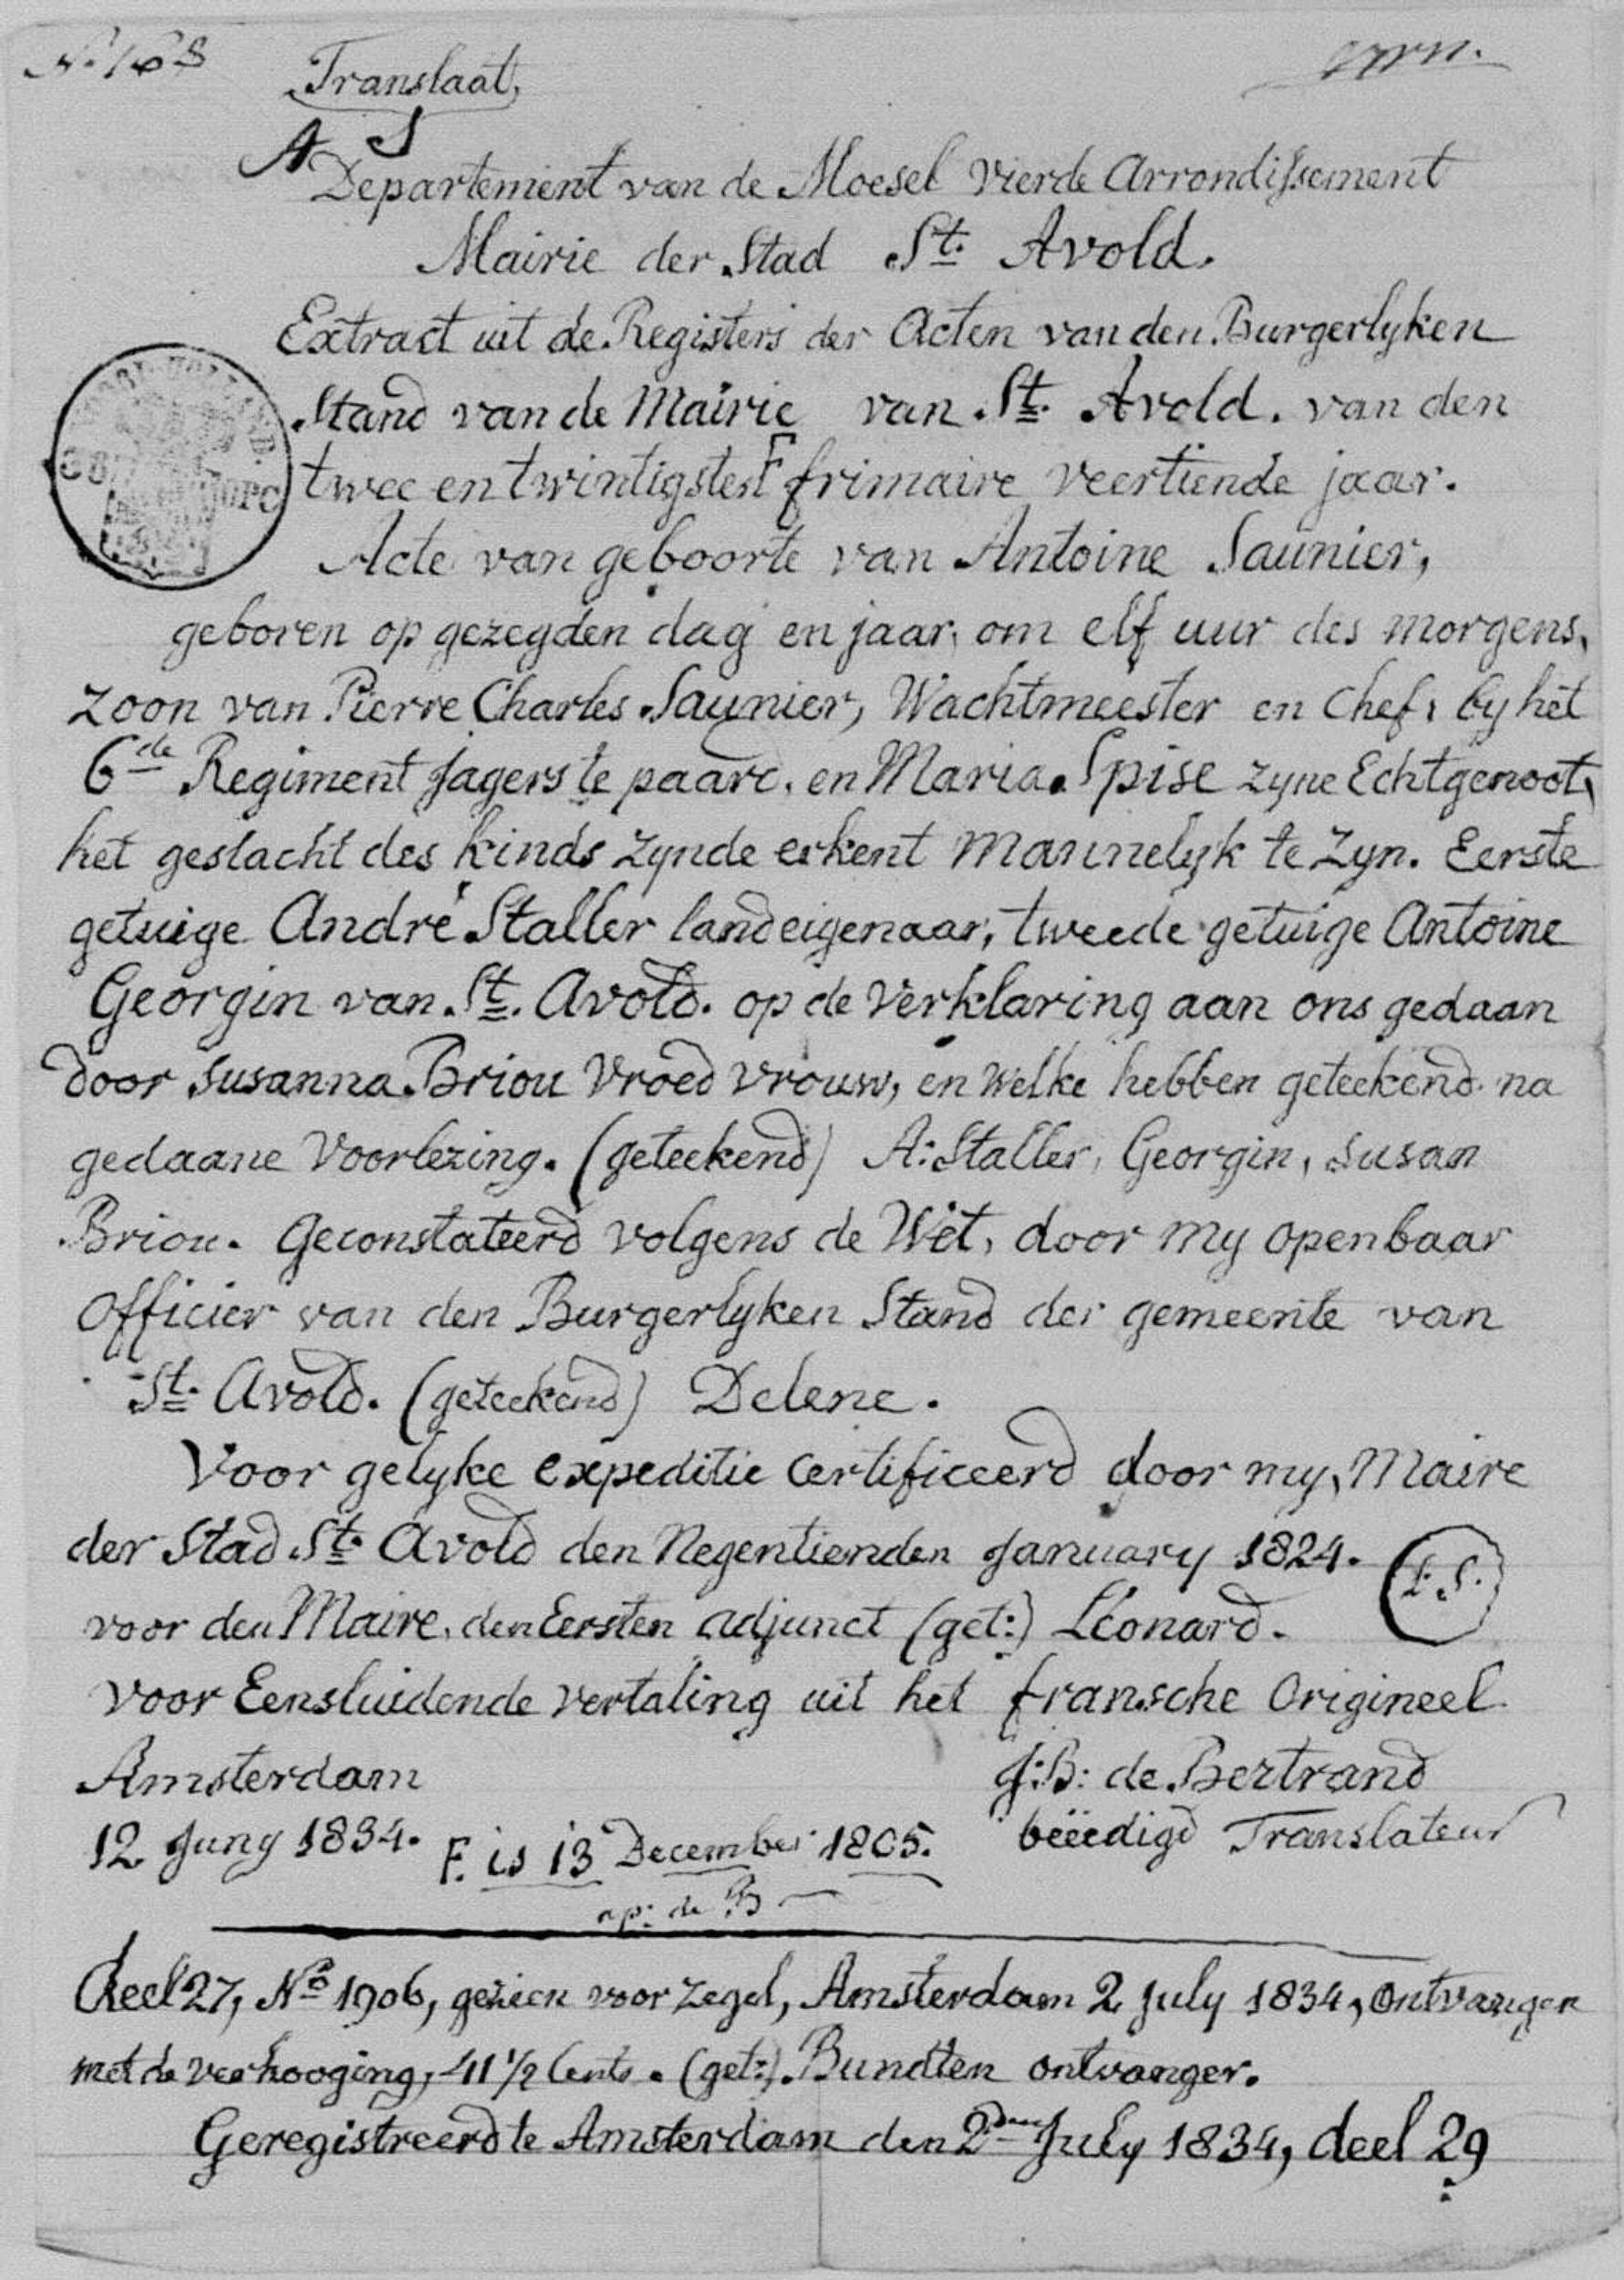 N. 168
Translaat,
A S
Departement van de Moesel vierde Arrondissement
Mairie der Stad St. Avold.
Extract uit de Registers der Acten van den Burgerlyken
Stand van de Mairie van St. Avold. van den
twee en twintigsten F frimaire veertiende jaar.
Acte van geboorte van Antoine Saunier,
geboren op gezegden dag en jaar, om elf uur des morgens,
zoon van Pierre Charles Saunier, Wachtmeester en Chef, by het
6de Regiment Jagers te paard, en Maria Spise zyne Echtgenoot,
het geslacht des kinds zynde erkent mannelyk te zyn. Eerste
getuige André Staller landeigenaar, tweede getuige Antoine
Georgin van St. Avold. op de verklaring aan ons gedaan
door Susanna Briou Vroed vrouw, en welke hebben geteekend na
gedaane voorlezing. (geteekend) A: Staller, Georgin, Susan
Briou. Geconstateerd volgens de Wet, door my openbaar
Officier van den Burgerlyken Stand der gemeente van
St. Avold. (geteekend) Delene.
Voor gelyke expeditie certificeerd door my, Maire
der Stad St. Avold den Negentienden January 1824.
L.S.
voor den Maire, den Eersten adjunct (get:) Léonard.
voor Eensluidende vertaling uit het fransche Origineel
Amsterdam J:B: de Bertrand
12 Juny 1834. F. is 13 December 1805. beëedigd Translateur
ap: de B
deel 27, No 1906, gezien voor zegel, Amsterdam 2 July 1834, ontvangen
met de verhooging, 41 1/2 Cents. (get:) Bundten ontvanger.
Geregistreerd te Amsterdam den 2den July 1834, deel 29